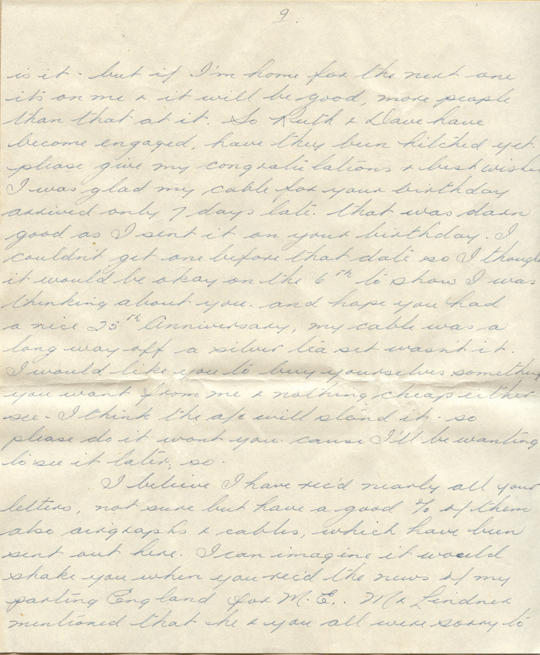 9.
is it - but if I'm home for the next one
its on me & it will be good, more people
than that at it. So Ruth & Dave have
become engaged, have they been hitched yet
please give my congratulations & best wishes
I was glad my cable for your birthday
arrived only 7 days late. that was darn
good as I sent it on your birthday. I
couldn't get one before that date so I though
it would be okay on the 6th to show I was
thinking about you. and hope you had
a nice 25th Anniversary, my cable was a
long way off a silver tea set wasn't it.
I would like you to buy yourselves something
you want from me & nothing cheap either
see - I think the a/c will stand it. so
please do it wont you cause I'll be wanting
to see it later, so.
I believe I have rec'd nearly all your
letters, not sure but have a good % of them
also airgraphs & cables, which have been
sent out here. I can imagine it would
shake you when you rec'd the news of my
parting England for M.E.. Mr Lindner
mentioned that he & you all were sorry to